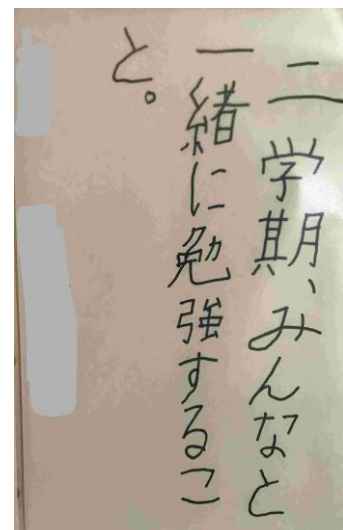 二学期、みんなと
一緒に勉強するこ
と。